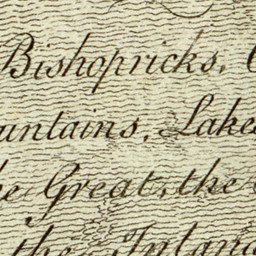 Bishopricks,
untains, Lakes
he Great, the
the Inland